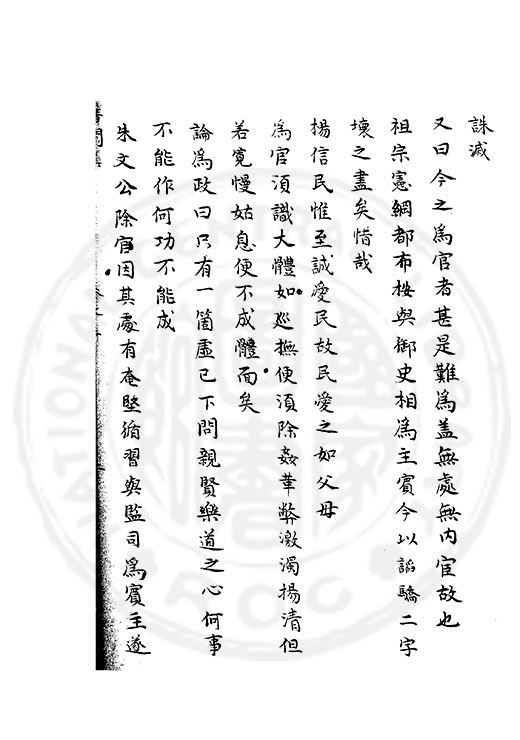 誅滅
又曰今之為官者甚是難為盖無處無内宦故也
祖宗憲綱都布按與御史相為主賓今以諂驕二字
壞之盡矣惜哉
楊信民惟至誠愛民故民愛之如父母
為官須識大體如巡撫便須除姦革弊激濁揚清但
若寛慢姑息便不成體面矣
論為政曰只有一箇虛己下問親賢樂道之心何事
不能作何功不能成
朱文公除官因其處有奄竪循習與監司為賓主遂